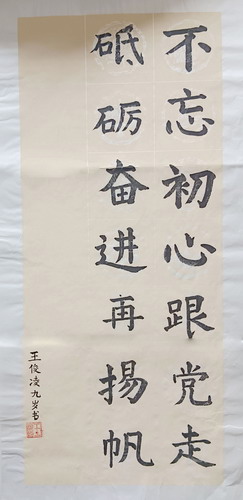 不忘初心跟党走
砥砺奋进再扬帆
王俊凌九岁书